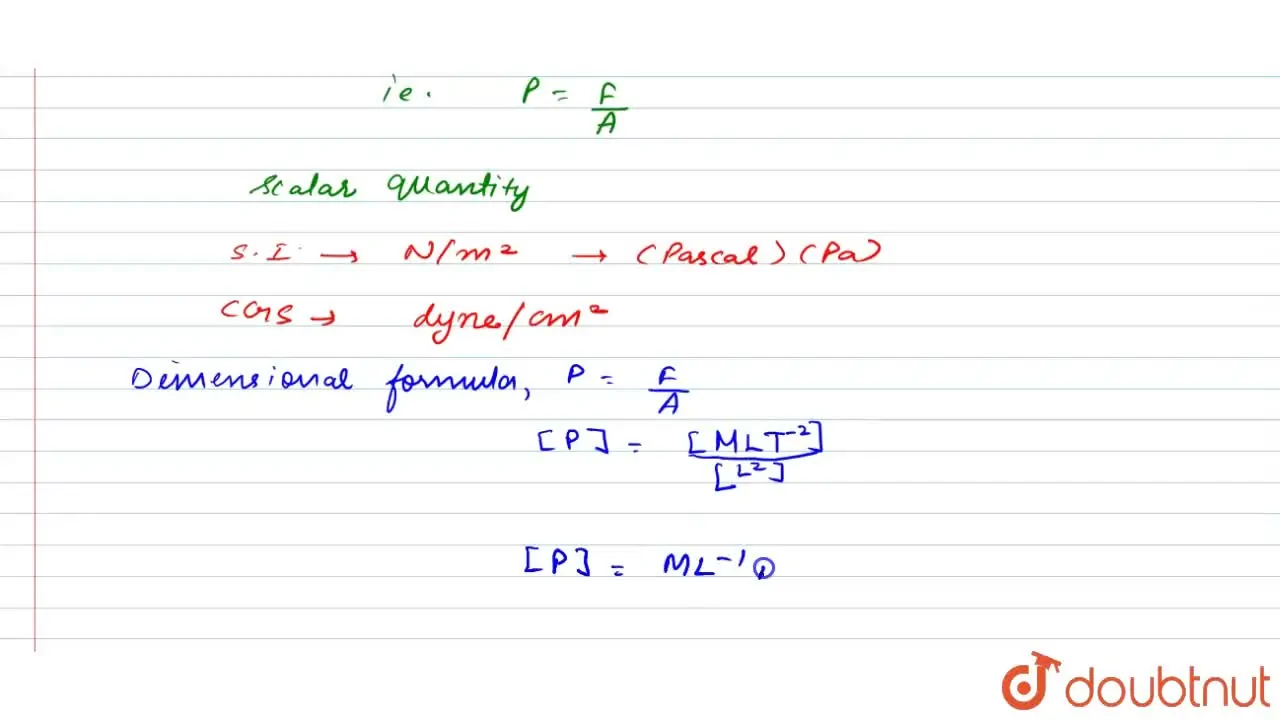 ie. P = F/A
scalar quantity
S.I → N/m² → (Pascal) (Pa)
CGS → dyne/cm²
Dimensional formula, P = F/A
[P] = [MLT⁻²]/[L²]
[P] = ML⁻¹
doubtnut